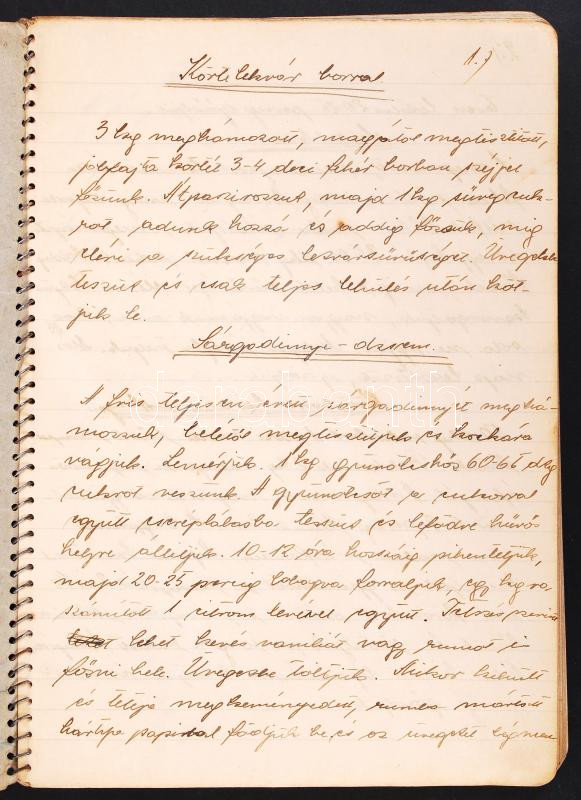 1.)
Körtelekvár borral
3 kg meghámozott, magjától megtisztított,
jobfajta körtét 3-4 deci fehér borban széjjel
főzünk. Átpaszirozzuk, majd 1 kg süvegcuk-
rot adunk hozzá és addig főzzük, míg
eléri a szükséges lekvársűrűséget. Üvegekbe
tesszük és csak teljes lehülés után köt-
jük le.
Sárgadinnye-dzsem.
A friss teljesen érett sárgadinnyét meghá-
mozzuk, belétől megtisztítjuk és kockára
vágjuk. Lemérjük. 1 kg gyümölcshöz 60-65 dkg
cukrot veszünk. A gyümölcsöt a cukorral
együtt cseréptálba tesszük és lefödve hűvös
helyre állítjuk. 10-12 óra hosszáig pihentetjük,
majd 20-25 percig lobogva forraljuk, egy kg-ra
számított 1 citrom levével együtt. Tetszés szerint
lehet kevés vaniliát vagy rumot is
főzni bele. Üvegekbe töltjük. Mikor kihűlt
és teteje megkeményedett, rumba mártott
hártya papirral födjük be, és az üvegeket